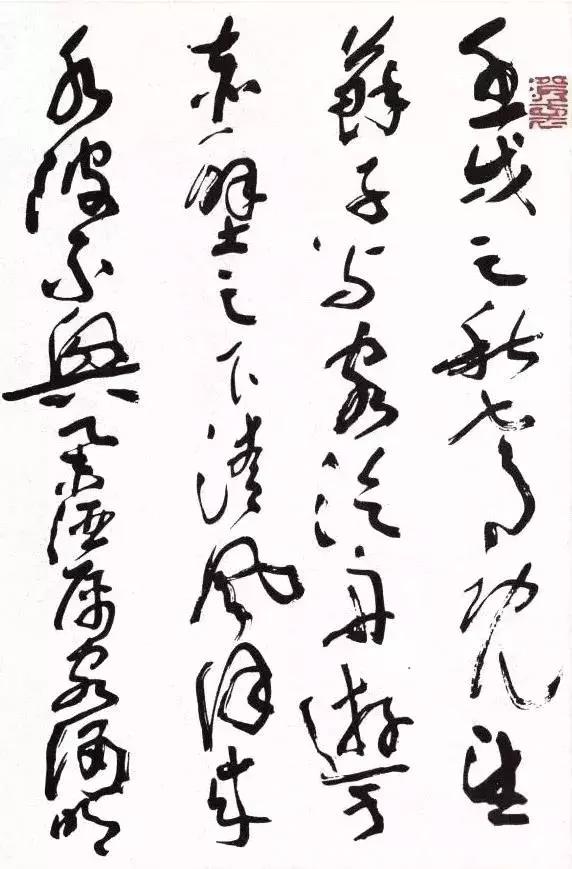 壬戌之秋七月既望
蘇子与客泛舟遊於
赤壁之下清風徐来
水波不興舉酒属客誦明